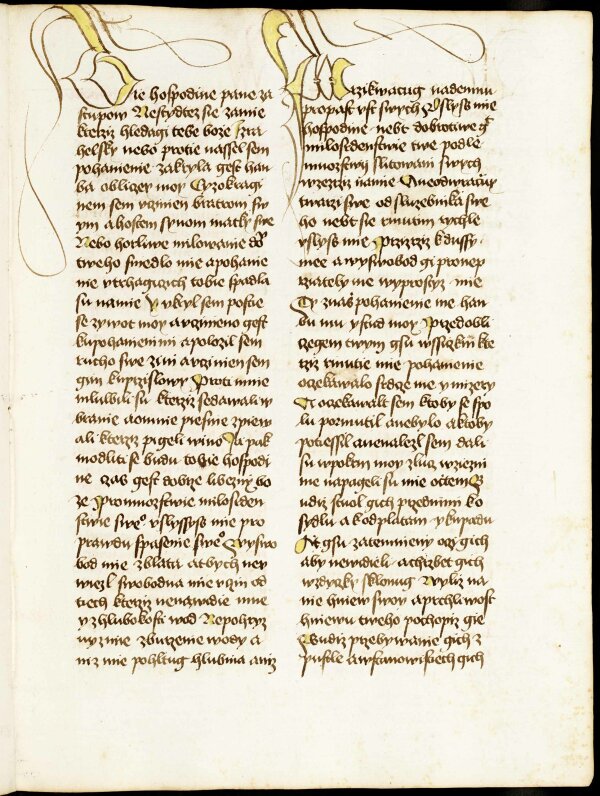 bie hospodine pane za
stupow Nestydtez sie zamie
kterziz hledagi tebe boze Izra
helsky nebo protie nassel sem
pohanienie zakryla gest han
ba obliczey moy Czyzokragi
nem sem vczinien bratrom sw
ym a hostem synom matky swe
Nebo horliwe milowanie
tweho sniedlo mie apohanie
nie vtrhagiczich tobie spadla
su namie Y vkryl sem postie
se zywot moy a vczineno gest
kupohanieni mi apolozil sem
rucho swe zini a vczinien sem
gim kuprzislowy Proti mnie
mluwili su kterziz sedawali w
branie aomnie piesnie zpiew
ali kterziz pigeli wino Ja pak
modliti se budu tobie hospodi
ne czas gest dobrze libezny bo
ze Promnozstwie milosrden
stwie swe° vslyssyss mie pro
prawdu spasenie swe° Wyswo
bod mie zblata at bych nev
wiezl swobodna mie vczin od
tiech kterziz nenawidie mne
y z hlubokosti wod Nepohrzyz
uyz mie zburzenie wody a
niz mie pohltug hlubina aniz
azikwatug nademnu
propast vst swych Vslyss mie
hospodine nebt dobrotiwe gt
milosrdenstwie twe podle
mnozstwy slitowani swych
wzezrzi namie Aneodwraczuy
twarzi swe od sluzebnika swe
ho nebt sie rmutim rychle
vslyss mie Przizrziz kdussy
mee a wyswobod gi pronep
rzately me wyprostyz mie
Ty znass pohanienie me han
bu mu y stud moy Przedobli
czegem twym gsu wssiczkni kte
rziz rmutie mie pohanienie
oczekawalo srdcze me y mizery
A oczekawalt sem ktoby se spo
lu pozmutil anebylo aktoby
potiessil anenalezl sem dali
su wpokrm moy zlucz wziezni
me napageli su mie octem B
udiz stuol gich przednimi ko
sydlu a kodplatam y kupadu
At gsu zatemnieny oczy gich
aby newidieli achrzbet gich
wzdyczky sklonug Wyliz na
nie hniew swoy a prchliwost
hniewu tweho pochopiz gie
Budiz przebywanie gich z
pustle awstanowistiech gich